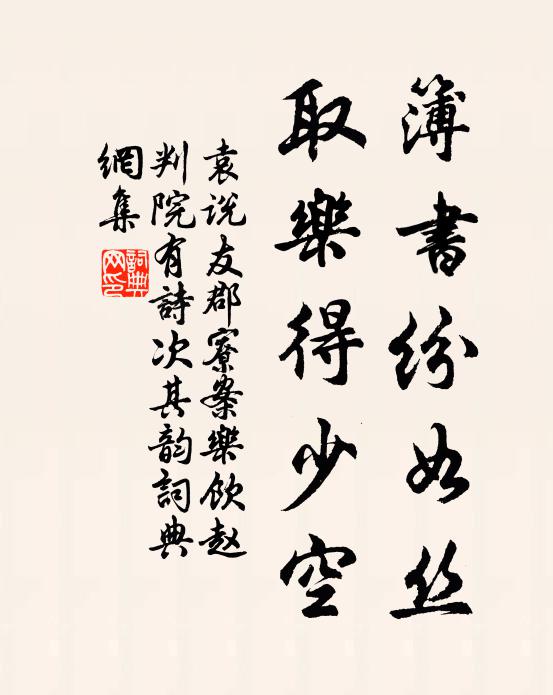 簿書紛如丝
取樂得少空
袁说友郡寮案樂飲赵
判院有詩次其韵詞典
網集
詞典
网印